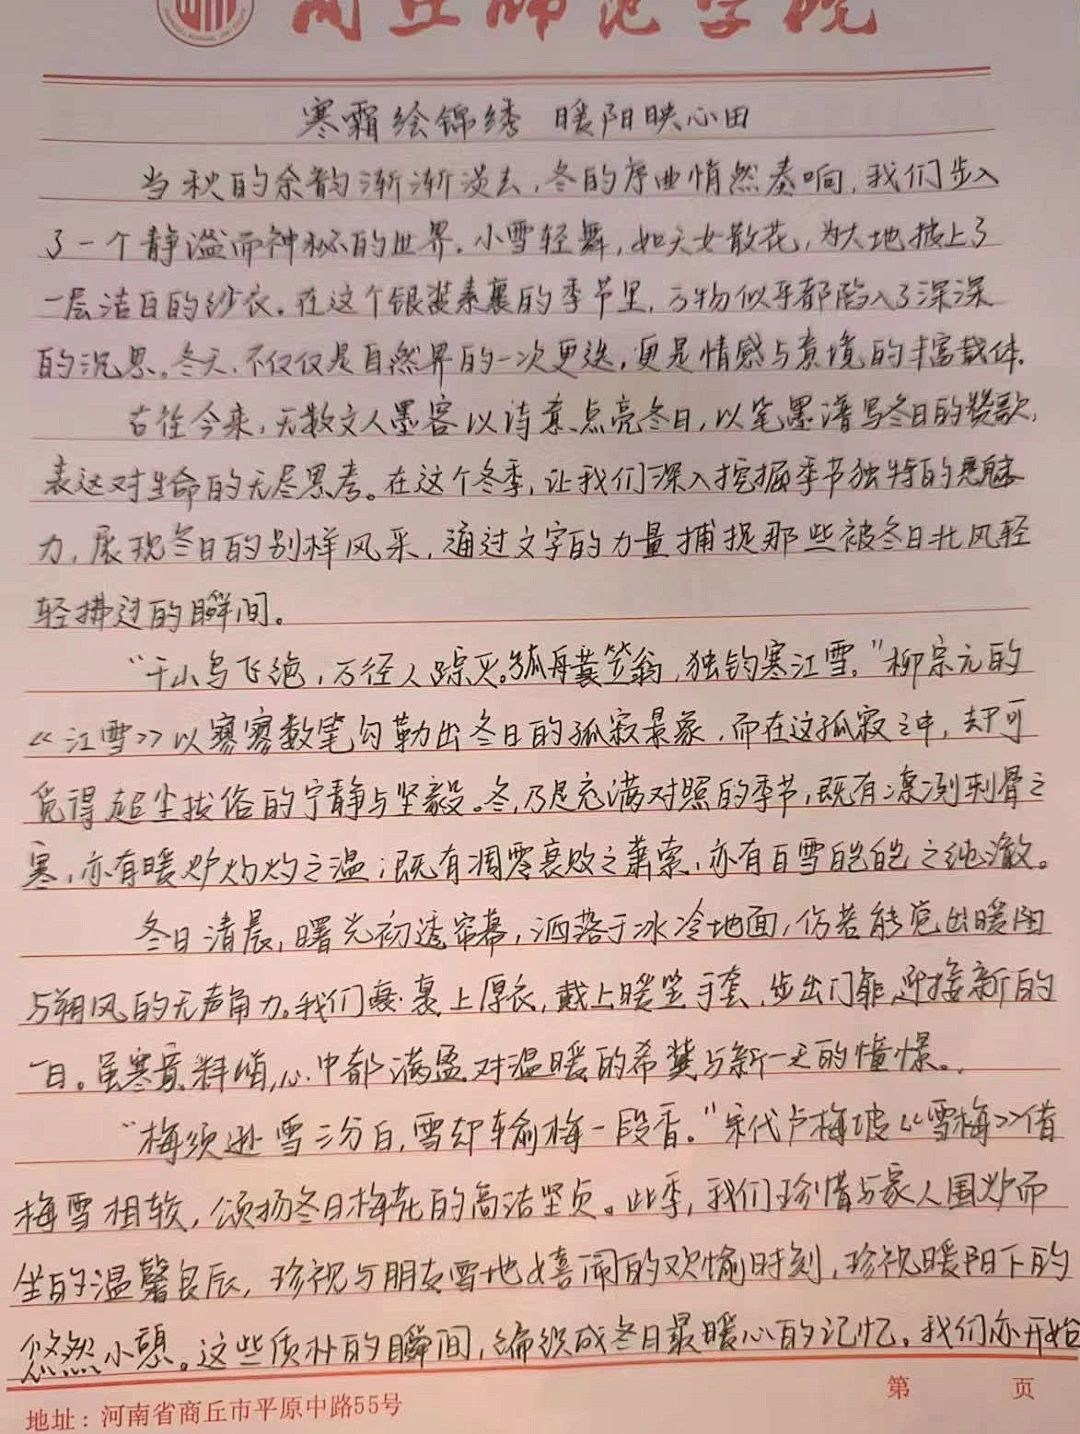 商丘师范学院
寒霜绘锦绣 暖阳映心田
当秋的余韵渐渐淡去,冬的序曲悄然奏响,我们步入
了一个静谧而神秘的世界。小雪轻舞,如天女散花,为大地披上了
一层洁白的纱衣。在这个银装素裹的季节里,万物似乎都陷入了深深
的沉思。冬天,不仅仅是自然界的一次更迭,更是情感与意境的丰富载体。
古往今来,无数文人墨客以诗意点亮冬日,以笔墨谱写冬日的赞歌,
表达对生命的无尽思考。在这个冬季,让我们深入挖掘季节独特的魅
力,展现冬日的别样风采,通过文字的力量捕捉那些被冬日北风轻
轻拂过的瞬间。
“千山鸟飞绝,万径人踪灭。孤舟蓑笠翁,独钓寒江雪。”柳宗元的
《江雪》以寥寥数笔勾勒出冬日的孤寂景象,而在这孤寂之中,却可
觅得超尘拔俗的宁静与坚毅。冬,乃是充满对照的季节,既有凛冽刺骨之
寒,亦有暖炉灼灼之温;既有凋零衰败之萧索,亦有白雪皑皑之纯澈。
冬日清晨,曙光初透帘幕,洒落于冰冷地面,仿若能觉出暖阳
与朔风的无声角力。我们裹上厚衣,戴上暖笠手套,步出门扉,迎接新的
一日。虽寒意料峭,心中都满盈对温暖的希冀与新一天的憧憬。
“梅须逊雪三分白,雪却输梅一段香。”宋代卢梅坡《雪梅》借
梅雪相较,颂扬冬日梅花的高洁坚贞。此季,我们珍惜与家人围炉而
坐的温馨良辰,珍视与朋友雪地嬉闹的欢愉时刻,珍视暖阳下的
悠然小憩。这些质朴的瞬间,编织成冬日最暖心的记忆。我们亦开始
第 页
地址:河南省商丘市平原中路55号